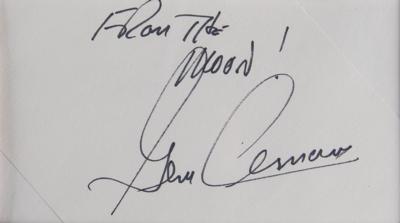 FROM THE
MOON!
Gene Cernan